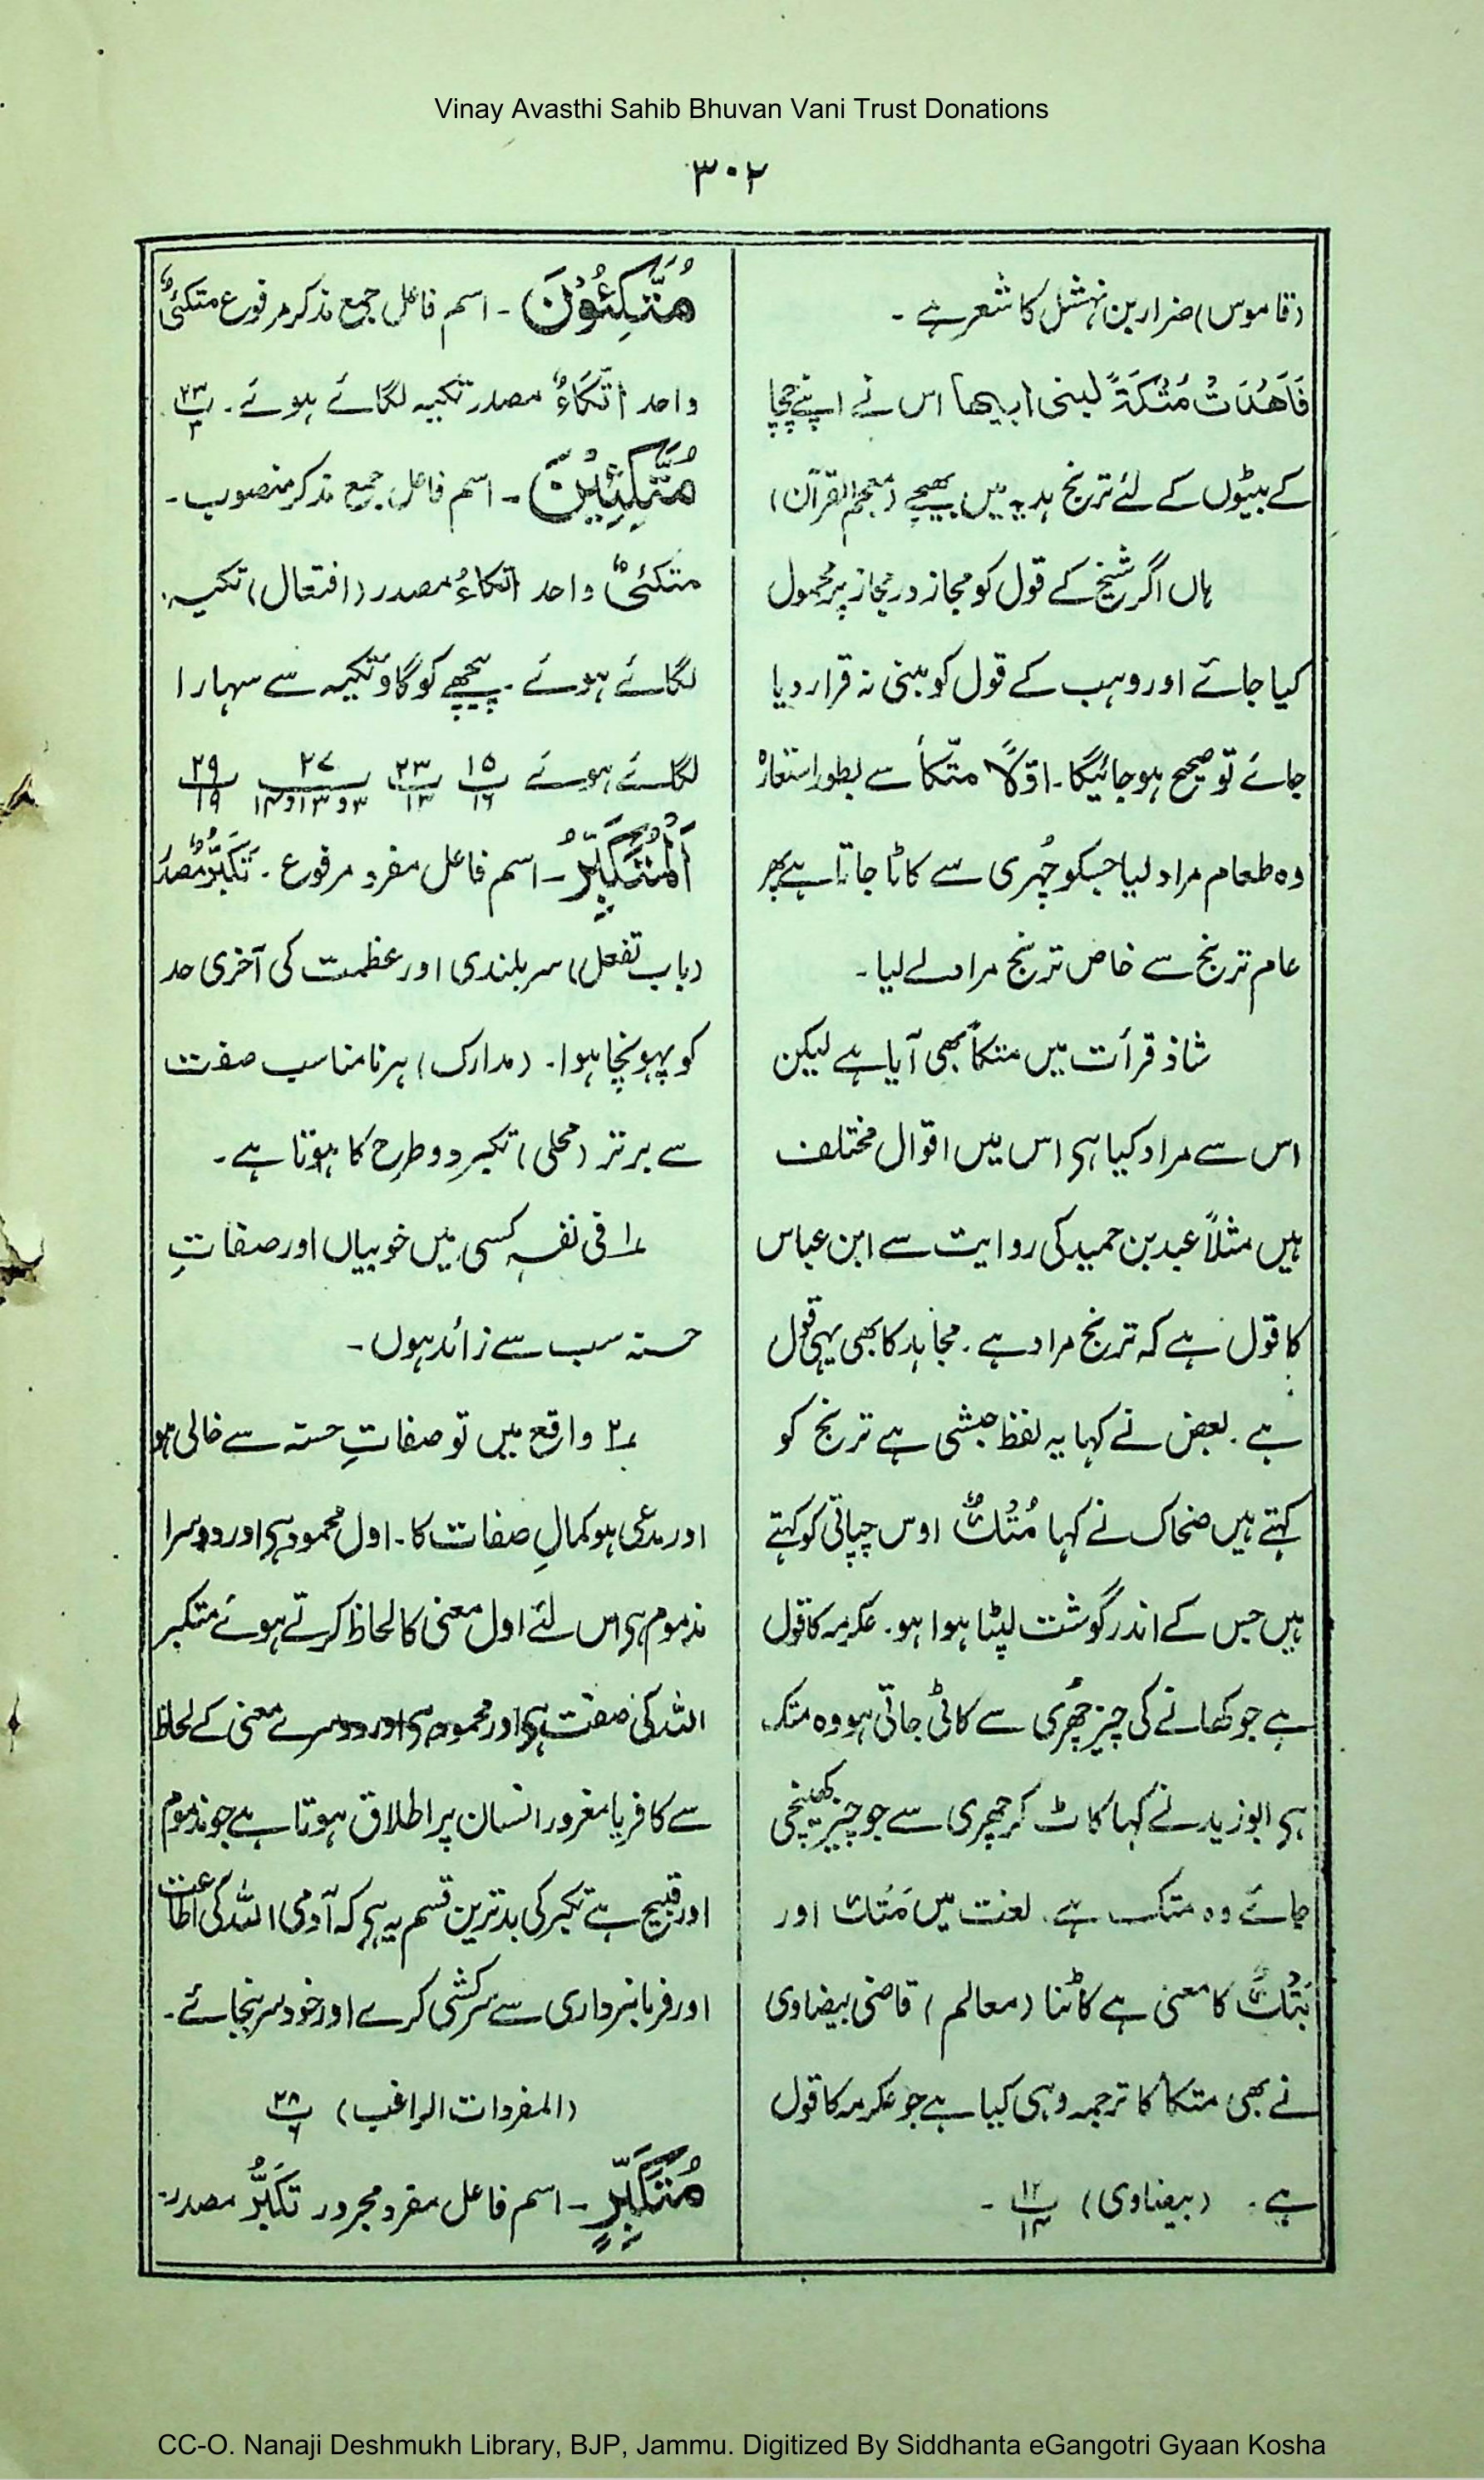 Vinay Avasthi Sahib Bhuvan Vani Trust Donations
۳۰۲
(قاموس) ضرار بن نہشل کا شعر ہے ۔
فَاَهْدَتْ مُتْكَةً لبنی ابیها اس نے اپنے چچا
کے بیٹوں کے لئے ترنج ہدیہ میں بھیجے (معجم القرآن)
ہاں اگر شیخ کے قول کو مجاز در مجاز پر محمول
کیا جائے اور وہب کے قول کو مبنی نہ قرار دیا
جائے تو صحیح ہو جائیگا۔ اوّلاً متّکأ سے بطور استعارہ
وہ طعام مراد لیا جسکو چُہری سے کاٹا جاتا ہے پھر
عام ترنج سے خاص ترنج مراد لے لیا ۔
شاذ قرأت میں متکاً بھی آیا ہے لیکن
اس سے مراد کیا ہی اس میں اقوال مختلف
ہیں مثلاً عبد بن حمید کی روایت سے ابن عباس
کا قول ہے کہ ترنج مراد ہے ۔ مجاہد کا بھی یہی قول
ہے ۔ بعض نے کہا یہ لفظ حبشی ہے ترنج کو
کہتے ہیں ضحاک نے کہا مُتْكٌ اوس چپاتی کو کہتے
ہیں جس کے اندر گوشت لپٹا ہوا ہو ۔ عکرمہ کا قول
ہے جو کھانے کی چیز چُھری سے کاٹی جاتی ہو وہ متک
ہی ابو زید نے کہا کاٹ کر چھری سے جو چیز کھینچی
جائے وہ متک ہے ۔ لغت میں مَتْك اور
بَتْكٌ کا معنی ہے کاٹنا (معالم) قاضی بیضاوی
نے بھی متکا کا ترجمہ وہی کیا ہے جو عکرمہ کا قول
ہے ۔ (بیضاوی) پ۱۲/۱۴ ۔
مُتَّكِئُوْنَ ۔ اسم فاعل جمع مذکر مرفوع متکئیٌ
واحد اتّكَاءٌ مصدر تکیہ لگائے ہوئے ۔ پ۲۳/۳
مُتَّكِئِيْنَ ۔ اسم فاعل جمع مذکر منصوب ۔
متکئیٌ واحد اتکاءُ مصدر (افتعال) تکیہ
لگائے ہوئے ۔ پیچھے کو گاؤ تکیہ سے سہارا
لگائے ہوئے پ۱۵/۱۶ پ۲۳/۱۳ پ۲۷/۳ و ۱۳ و ۱۴ پ۲۹/۱۹
اَلْمُتَكَبِّرُ ۔ اسم فاعل مفرد مرفوع ۔ تَكَبُّرٌ مصدر
(باب تفعل) سربلندی اور عظمت کی آخری حد
کو پہونچا ہوا ۔ (مدارک) ہر نامناسب صفت
سے برتر (محلی) تکبر دو طرح کا ہوتا ہے ۔
۱ فی نفسہٖ کسی میں خوبیاں اور صفاتِ
حسنہ سب سے زائد ہوں ۔
۲ واقع میں تو صفاتِ حسنہ سے خالی ہو
اور مدعی ہو کمالِ صفات کا ۔ اول محمود ہی اور دوسرا
مذموم ہی اس لئے اول معنی کا لحاظ کرتے ہوئے متکبر
اللہ کی صفت ہی اور محمود ہی اور دوسرے معنی کے لحاظ
سے کافر یا مغرور انسان پر اطلاق ہوتا ہے جو مذموم
اور قبیح ہے تکبر کی بدترین قسم یہ ہی کہ آدمی اللہ کی اطاعت
اور فرمانبرداری سے سرکشی کرے اور خود سر بنجائے ۔
(المفردات الراغب) پ۲۸/۶
مُتَكَبِّرٍ ۔ اسم فاعل مفرد مجرور تَكَبُّرٌ مصدر
CC-O. Nanaji Deshmukh Library, BJP, Jammu. Digitized By Siddhanta eGangotri Gyaan Kosha